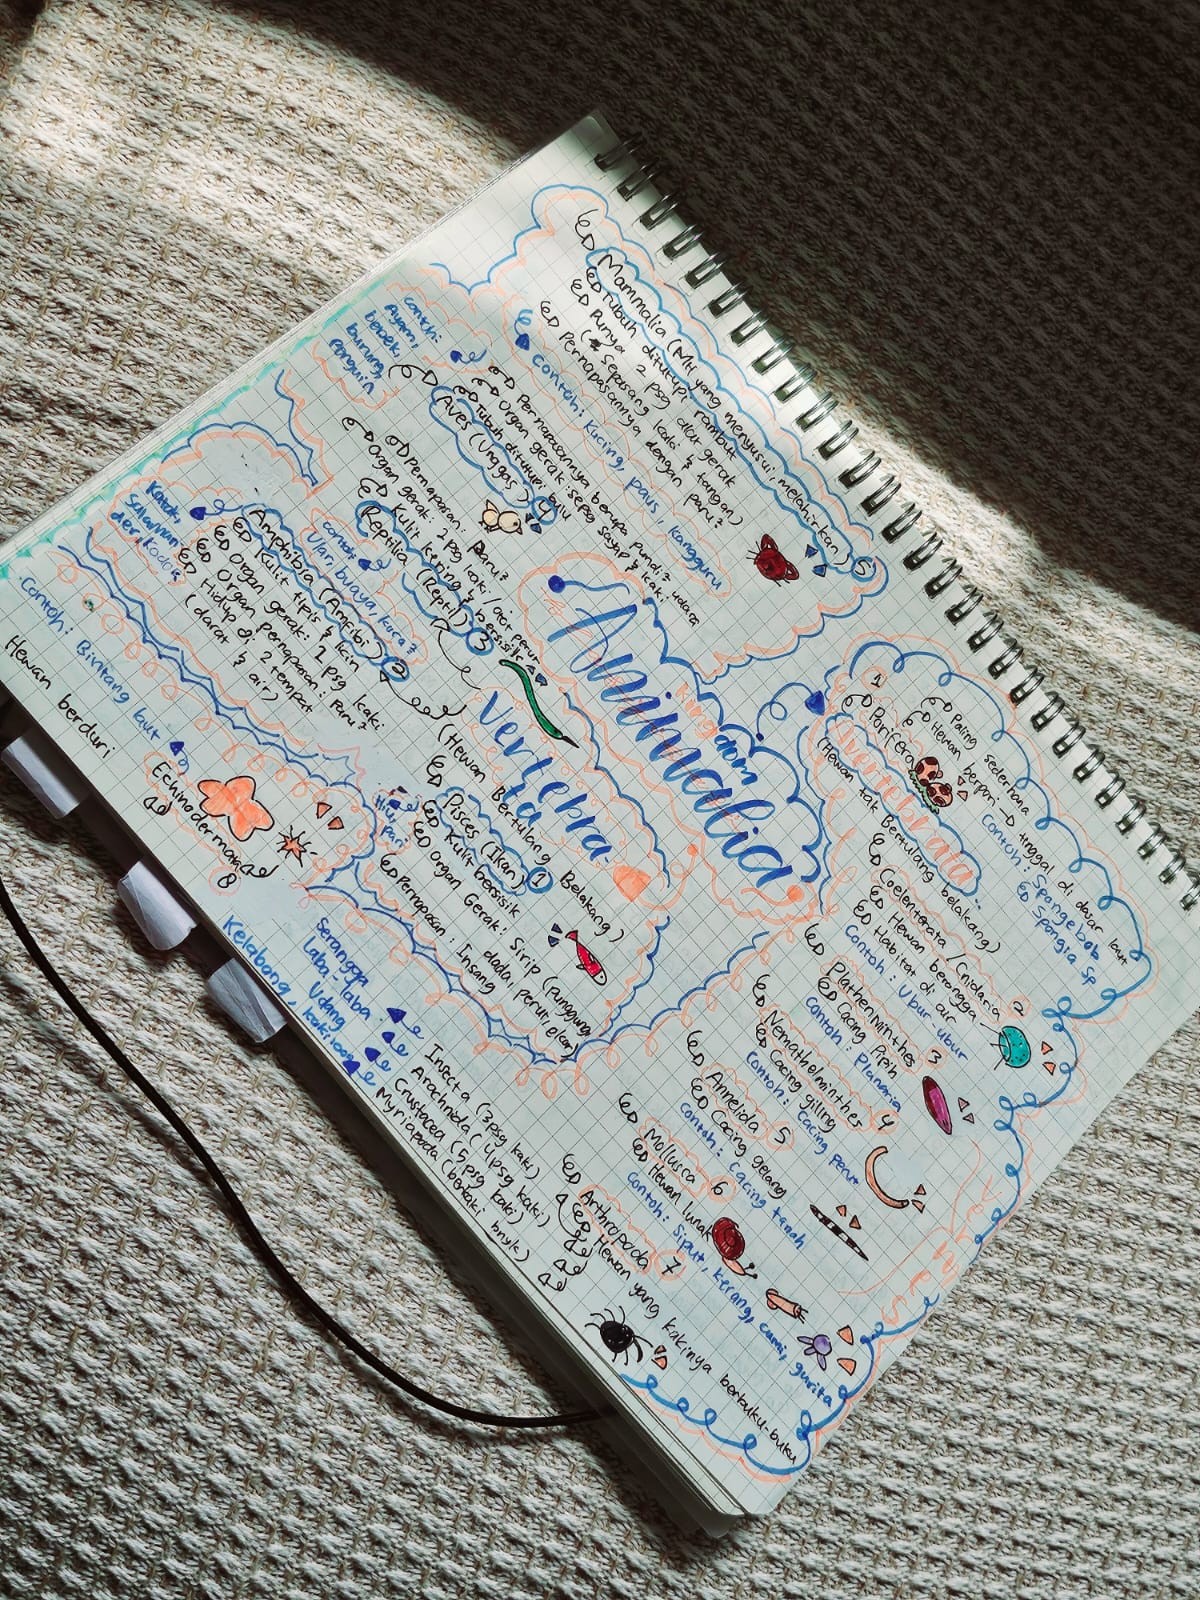 Kingdom
Animalia
Vertebra-
ta
(Hewan Bertulang Belakang)
Pisces (Ikan) 1
Kulit bersisik
Organ Gerak: Sirip (Punggung,
dada, perut, ekor)
Pernapasan: Insang
Hiu, pari
Amphibia (Amfibi) 2
Kulit tipis & licin
Organ gerak: 2 psg kaki
Organ pernapasan: Paru²
Hidup di 2 tempat
(darat & air)
Katak,
Salaman
der, kodok
Reptilia (Reptil) 3
Kulit kering & bersisik
Organ gerak: 2 psg kaki / otot perut
Pernapasan: Paru²
contoh:
Ular, buaya, kura²
Aves (Unggas) 4
Tubuh ditutupi bulu
Organ gerak: sepsg sayap & kaki
Pernapasannya berupa pundi² udara
contoh:
Ayam,
bebek,
burung,
Penguin
Mammalia (MH yang menyusui, melahirkan) 5
Tubuh ditutupi rambut
Punya 2 psg alat gerak
(sepasang kaki & tangan)
Pernapasannya dengan paru²
contoh: Kucing, paus, kangguru
Invertebrata
(Hewan tak Bertulang belakang)
1
Porifera
Hewan berpori
Paling sederhana
tinggal di dasar laut
Contoh: Spongebob
Spongia sp
Coelenterata / Cnidaria 2
Hewan berongga
Habitat di air
Contoh: Ubur-ubur
Plathelminthes 3
Cacing Pipih
Contoh: Planaria
Nemathelminthes 4
Cacing giling
Contoh: Cacing perut
Annelida 5
Cacing gelang
Contoh: Cacing tanah
Mollusca 6
Hewan lunak
Contoh: Siput, kerang, cumi, gurita
Arthropoda 7
Hewan yang kakinya berbuku-buku
Insecta (3 psg kaki)
Arachnida (4 psg kaki)
Crustacea (5 psg kaki)
Myriapoda (berkaki bnyk)
Serangga
Laba-laba
Udang
Kelabang, kaki 1000
Echinodermata
8
Hewan berduri
Contoh: Bintang laut